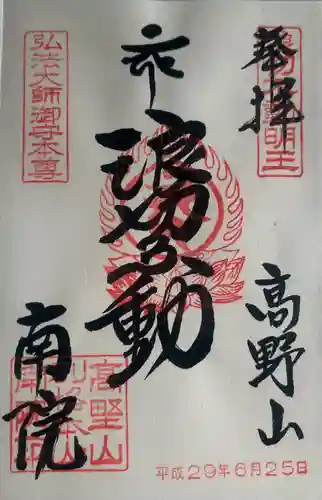 奉拝
高野山
浪切不動
南院
弘法大師御守本尊
高野山
平成29年6月25日